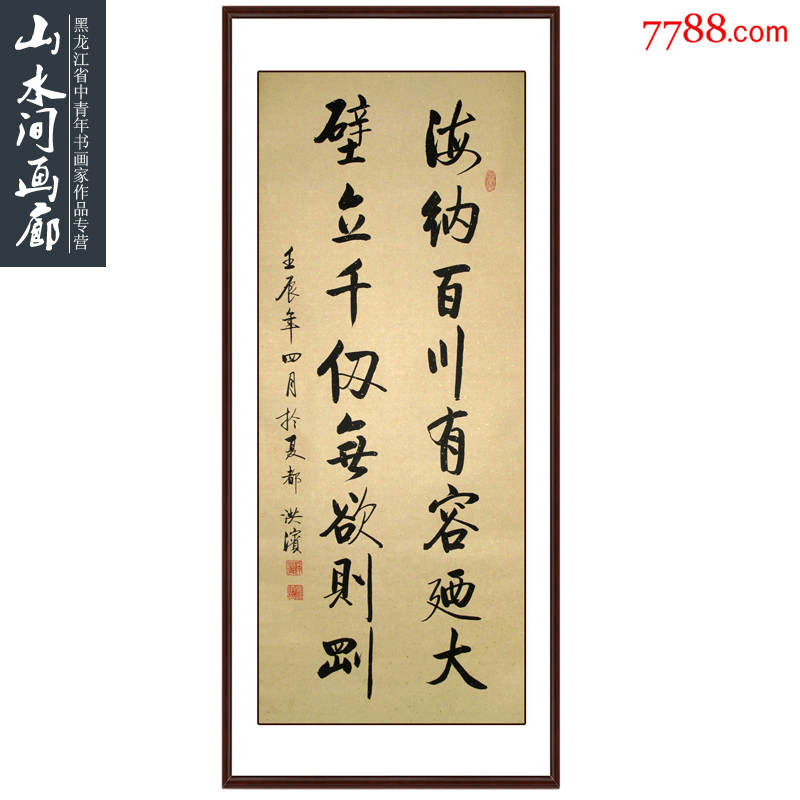 山水间画廊
黑龙江省中青年书画家作品专营
7788.com
海纳百川有容廼大
壁立千仞無欲則剛
壬辰年四月於夏都 洪濱